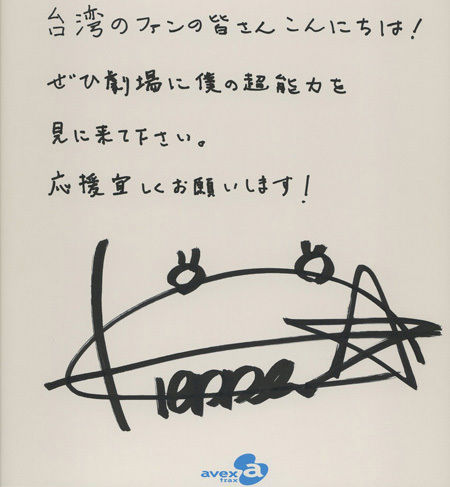 台湾のファンの皆さんこんにちは!
ぜひ劇場に僕の超能力を
見に来て下さい。
応援宜しくお願いします!
avex
trax